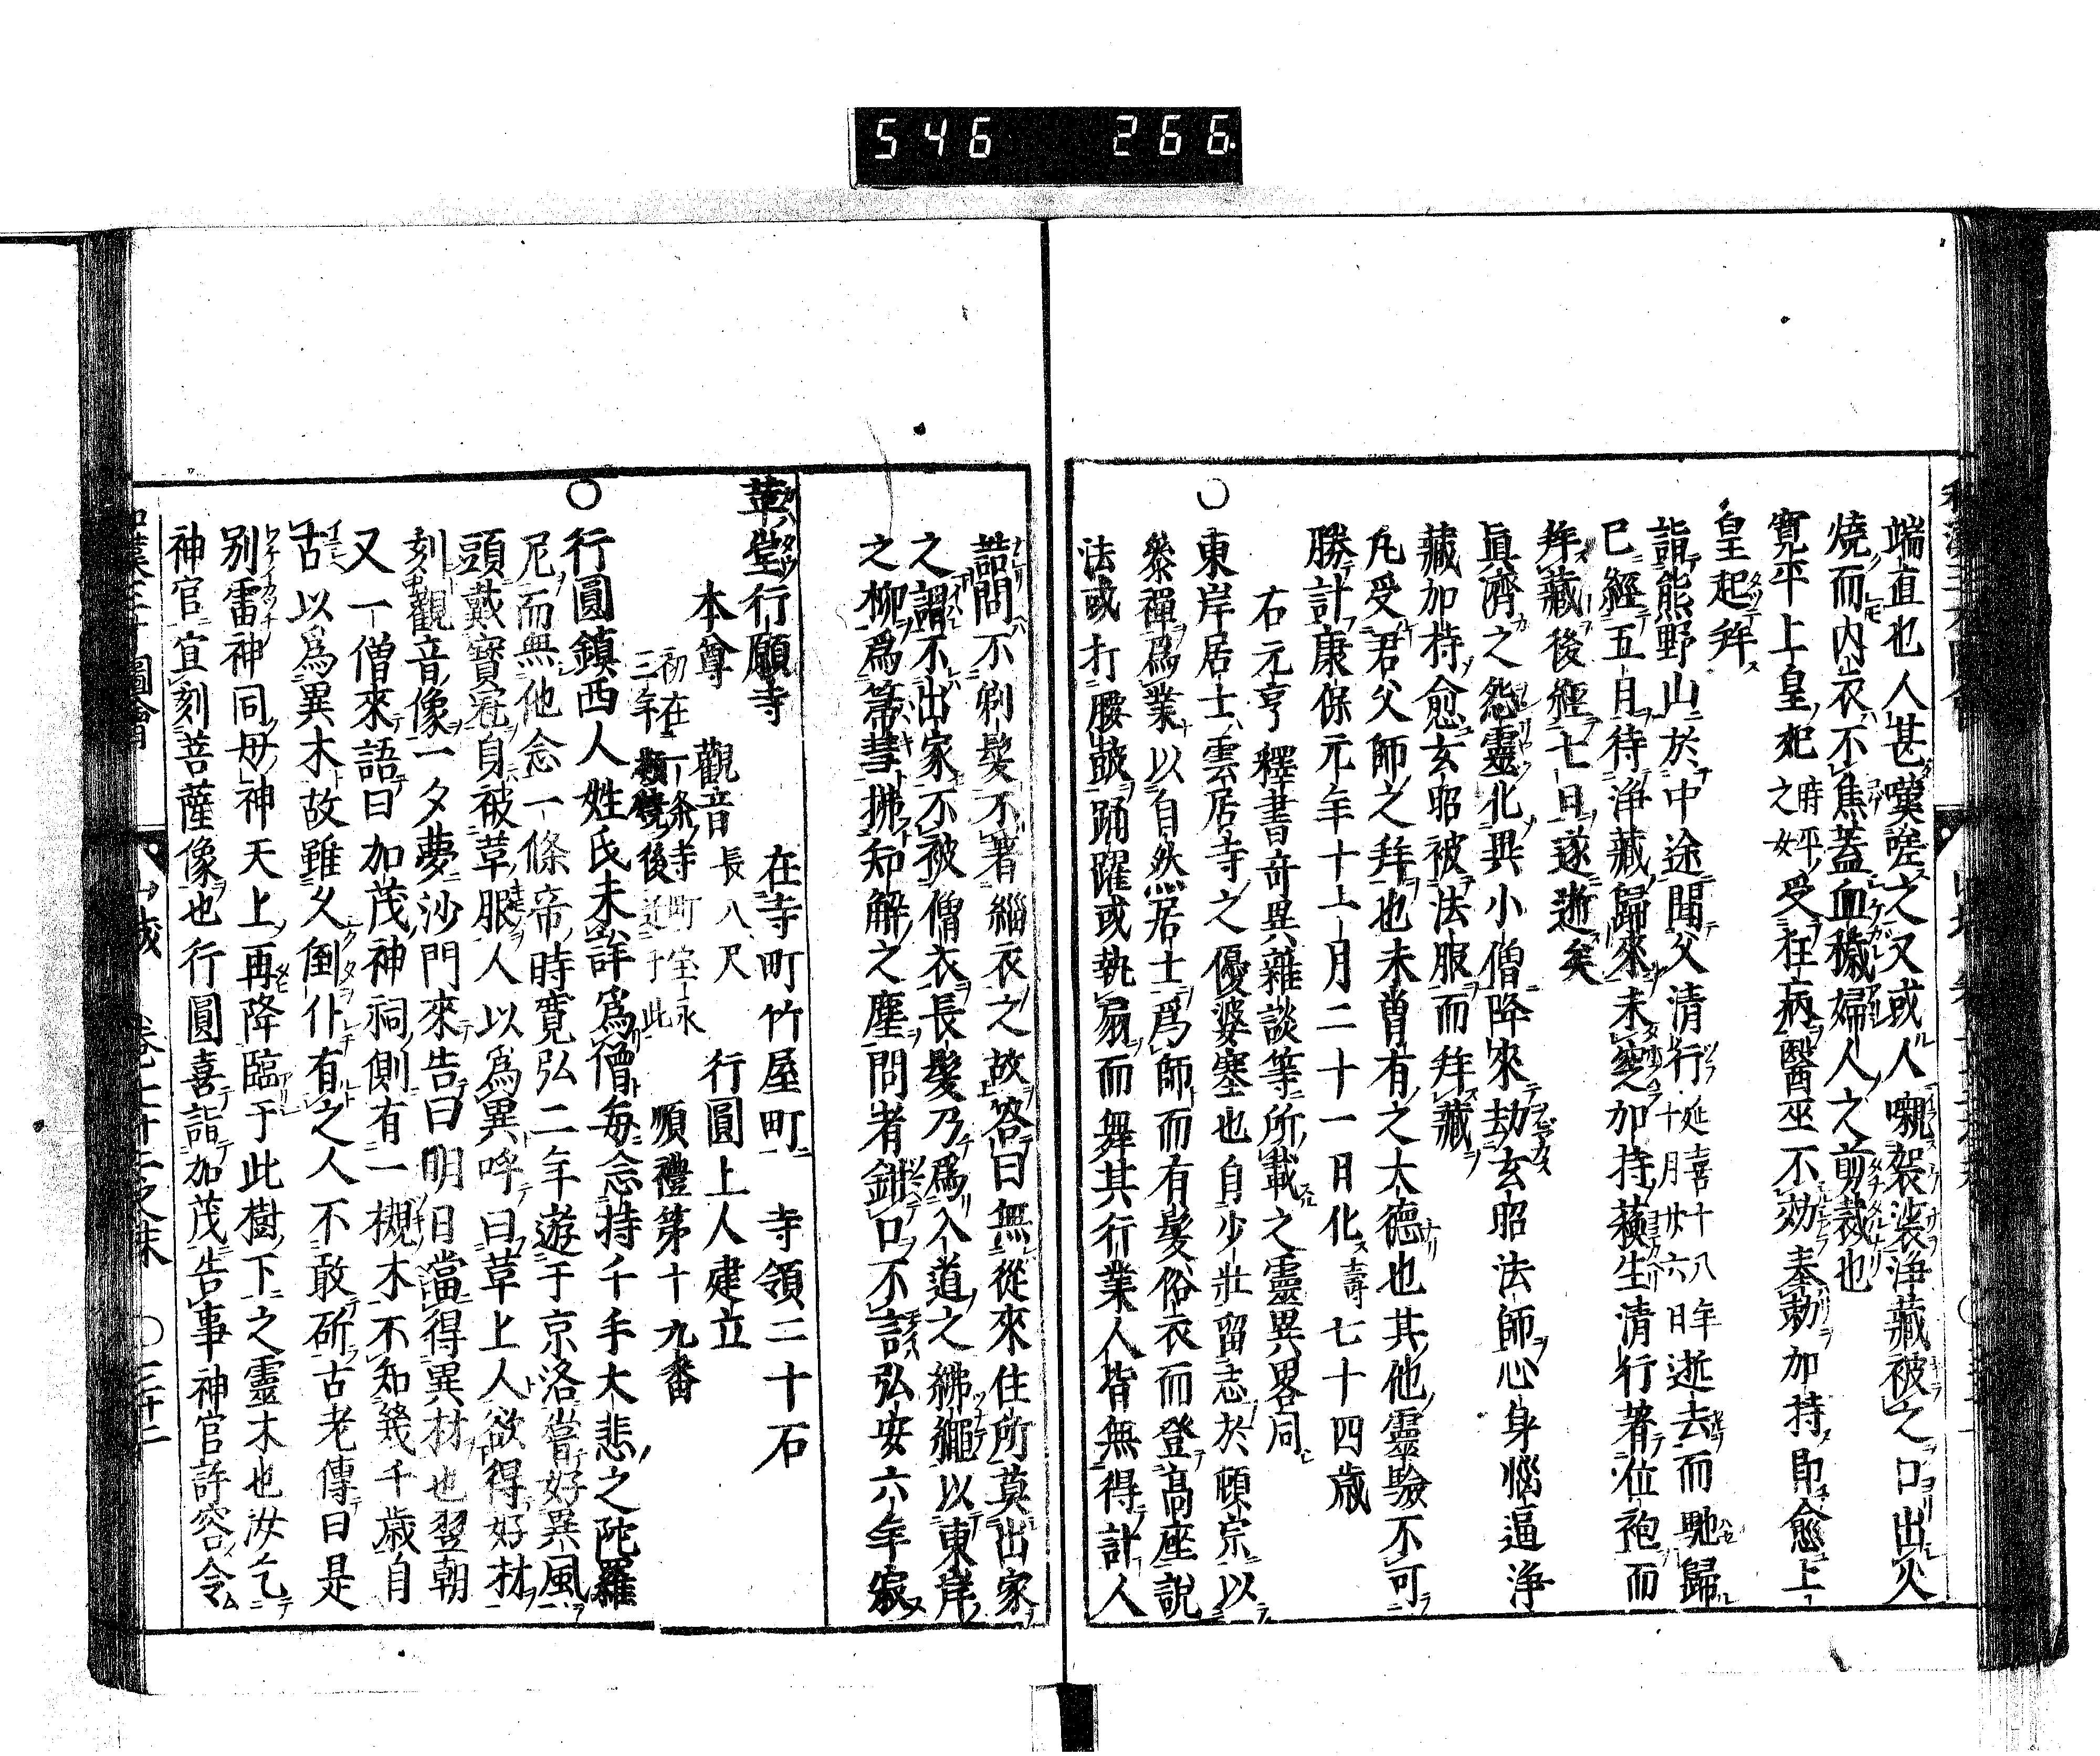 546 266
端直也人甚嘆嗟之又或人噺袈裟浄藏被之口出火
燒而内衣不焦蓋血穢婦人之前裁也
寛平上皇妃時平之女受狂病醫巫不効奉勅加持即愈上
皇起拜
詣熊野山於中途聞父清行延喜十八年十月廿六日逝去而馳歸
已經五日待浄藏歸來未窆加持蘓生清行著位袍而
拜藏後經七日遂逝矣
眞濟之怨靈北與小僧降來劫玄昭法師心身惱逼浄
藏加持愈玄昭被法服而拜藏
凡受君父師之拜也未曽有之大德也其他靈驗不可
勝計康保元年十一月二十一日化壽七十四歳
右元亨釋書竒異雜談等所載之靈異畧同
○東岸居士雲居寺之優婆塞也自少壯留志於頓宗以
叅禪爲業以自然居士爲師而有髮俗衣而登高座說
法或打腰鼓踊躍或執扇而舞其行業人皆無得計人
詰問不剃髮不著緇衣之故答曰無從來住所莫出家
之謂不出家不被僧衣長髮乃爲入道之紼繩以東岸
之柳爲箒彗拂知解之塵問者鉗口不言弘安六年寂
華堂行願寺 在寺町竹屋町 寺領二十石
本尊 觀音長八尺 行圓上人建立
初在一条寺町宝永三年類燒後迁于此 順禮第十九番
○行圓鎮西人姓氏未詳爲僧每念持千手大悲之陀羅
尼而無他念一條帝時寛弘二年遊于京洛甞好異風
頭戴寶冠身被草服人以爲異呼曰草上人欲得好材
刻觀音像一夕夢沙門來告曰明日當得異材也翌朝
又一僧來語曰加茂神祠側有一槻木不知幾千歳自
古以爲異木故雖夂倒仆有之人不敢斫古老傳曰是
別雷神同母神天上再降臨于此樹下之靈木也汝乞
神官宜刻菩薩像也行圓喜詣加茂告事神官許容令